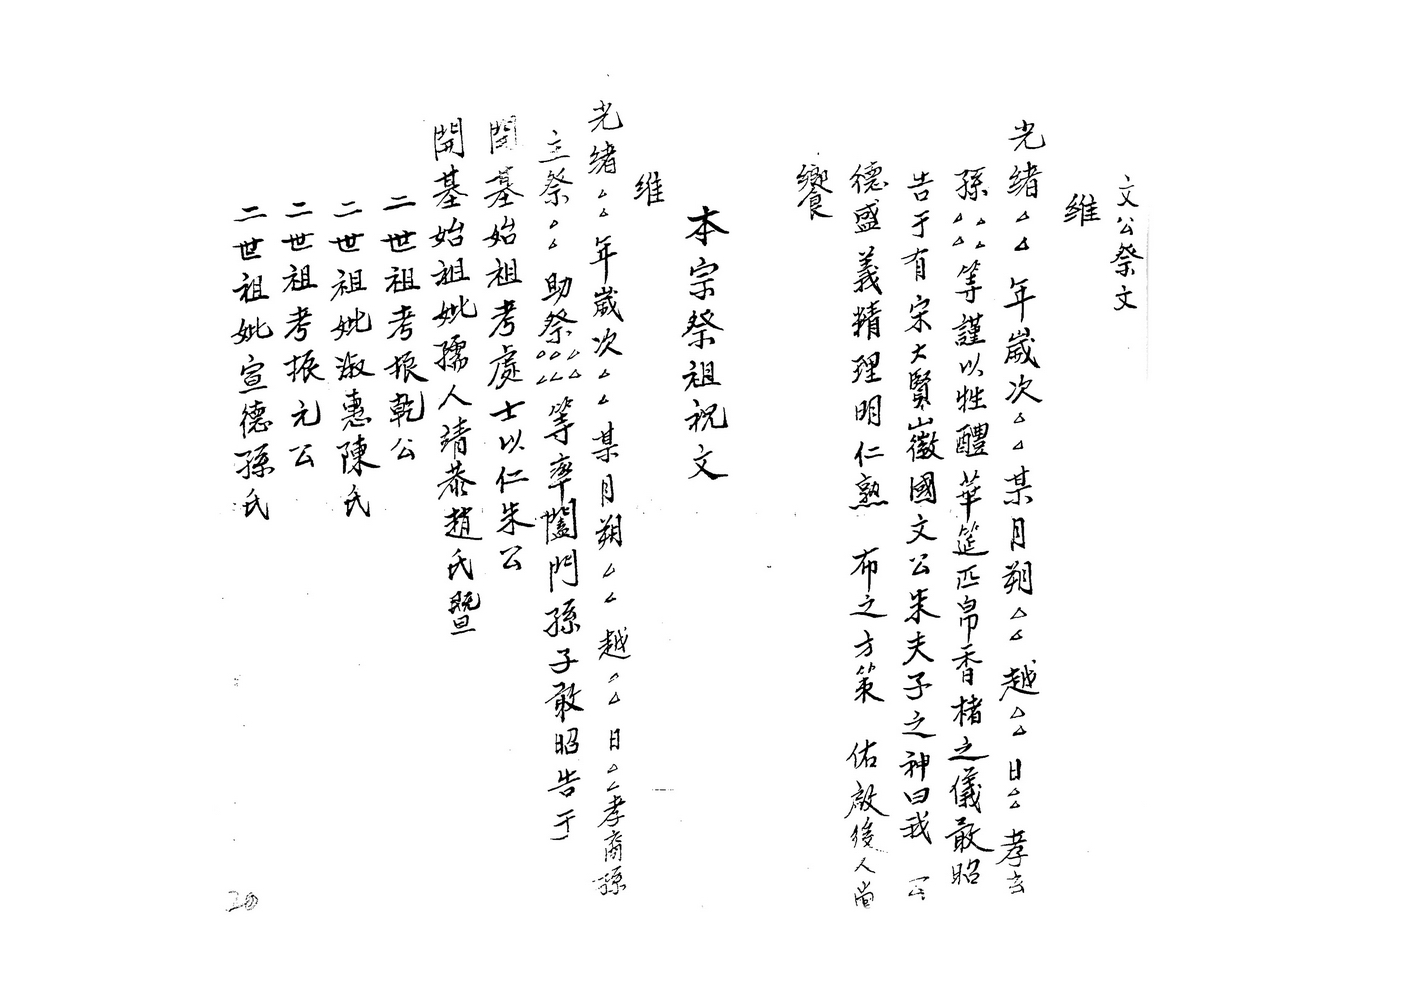 文公祭文
維
光緒△△年歲次△△某月朔△△越△△日△△孝玄
孫△△△△等謹以牲醴華筵匹帛香楮之儀敢昭
告于有宋大賢徽國文公朱夫子之神曰我 公
德盛義精理明仁熟 布之方策 佑啟後人尚
饗
本宗祭祖祝文
維
光緒△△年歲次△△某月朔△△越△△日△△孝裔孫
主祭△△助祭△△△△△△△△等率闔門孫子敢昭告于
開基始祖考處士以仁朱公
開基始祖妣孺人靖恭趙氏暨
二世祖考振乾公
二世祖妣淑惠陳氏
二世祖考振元公
二世祖妣宣德孫氏
20